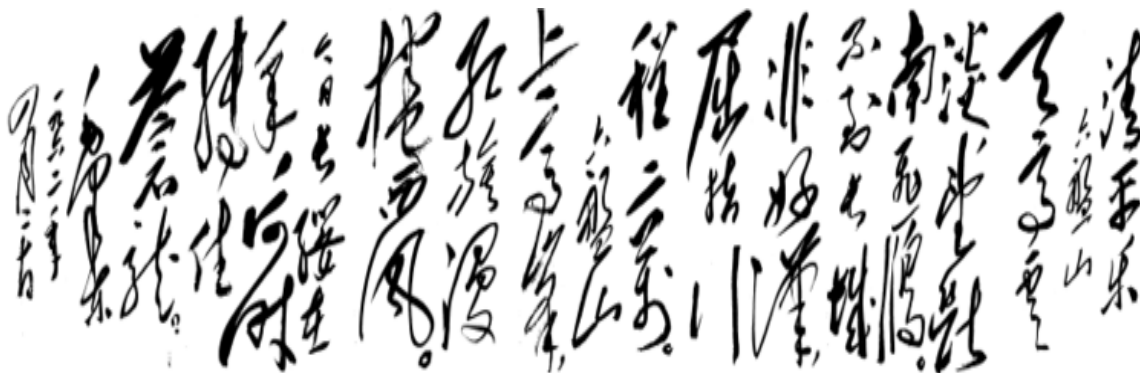 清平乐
六盘山
天高云
淡，望断
南飛雁。
不到长城
非好漢，
屈指行
程二萬。
六盘山
上高峰，
红旗漫
捲西風。
今日长缨在
手，何时
缚住
苍龙。
毛泽东
一九六一年
九月